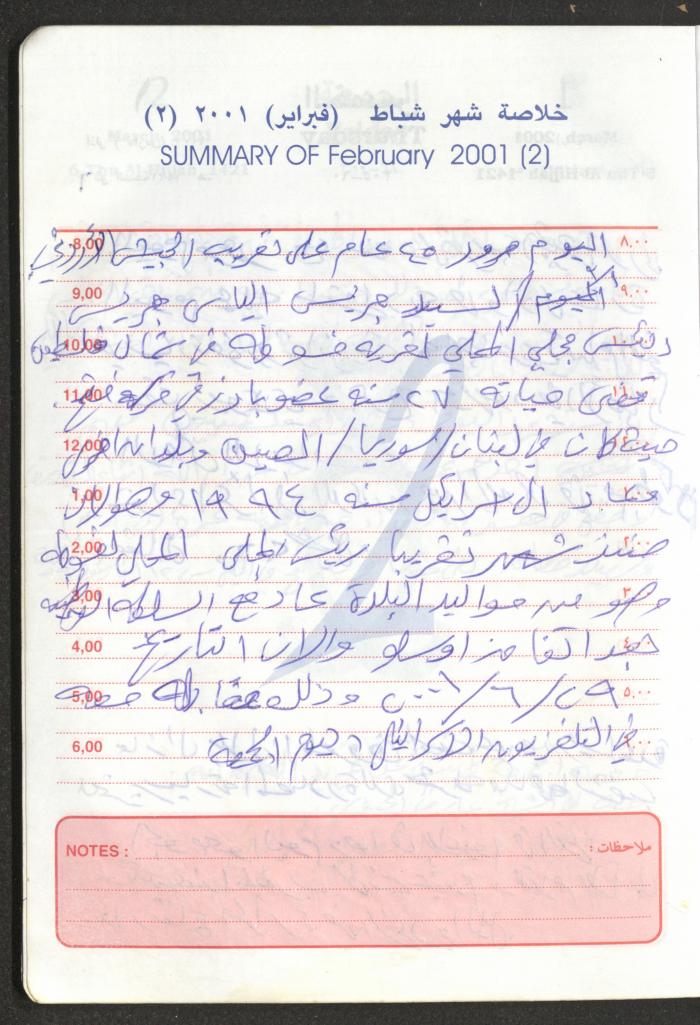 خلاصة شهر شباط (فبراير) ٢٠٠١ (٢)
SUMMARY OF February 2001 (2)
8,00 اليوم مرور ٤٥ عام على تعريب الجيش الأردني ٨,٠٠
9,00 اليوم / السيد جريس الياس جريس ٩,٠٠
10,00 رئيس مجلي المحلي لقرية فسوطه في شمال فلسطين ١٠,٠٠
11,00 قضى حياته ٢٧ سنه عضو بارز في حركة فتح ١١,٠٠
12,00 حيث كان في لبنان / سوريا / الصين وبلدان اخرى
1,00 وعاد الى اسرائيل سنه ١٩٩٤ وهو الان ١,٠٠
2,00 منذ شهر تقريبا رئيس المجلي المحلي لفسوطه ٢,٠٠
3,00 وهو من مواليد البلدة عاد مع السلطه الوطنيه ٣,٠٠
4,00 بعد اتفاق اوسلو والان التاريخ ٤,٠٠
5,00 ٢٩/٦/٢٠٠١ وذلك مقابله معه ٥,٠٠
6,00 في التلفزيون الاسرائيلي يوم الجمعة ٦,٠٠
NOTES : ملاحظات :